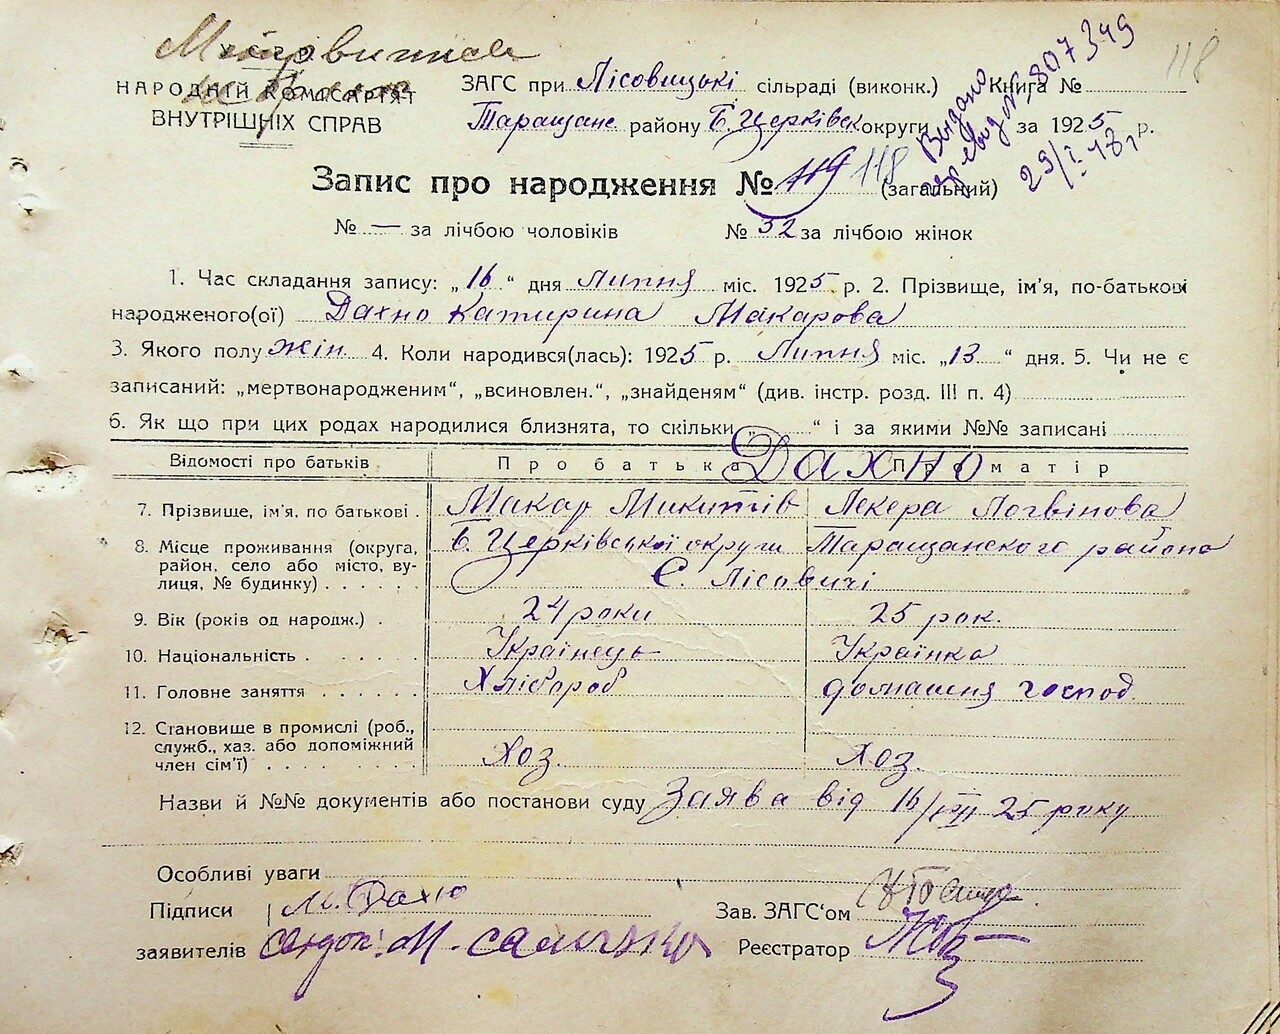 НАРОДНІЙ КОМІСАРІЯТ
ВНУТРІШНІХ СПРАВ
ЗАГС при Лісовицькі сільраді (виконк.) Книга №
Таращанс району Б. Церківськ округи за 1925 р.
Видано
807349
29/I 48 г
118
Запис про народження № 119 118 (загальний)
№ — за лічбою чоловіків № 52 за лічбою жінок
1. Час складання запису: „16“ дня Липня міс. 1925 р. 2. Прізвище, ім'я, по-батькові
народженого(ої) Дахно Катирина Макарова
3. Якого полу жін 4. Коли народився(лась): 1925 р. Липня міс. „13“ дня. 5. Чи не є
записаний: „мертвонародженим“, „всиновлен.“, „знайденям“ (див. інстр. розд. III п. 4)
6. Як що при цих родах народилися близнята, то скільки „ “ і за якими №№ записані
Відомості про батьків Про батька Про матір
Дахно
7. Прізвище, ім'я, по батькові . Макар Микитів Лекера Логвінова
8. Місце проживання (округа, Б. Церківської округи Таращанского района
район, село або місто, ву-
лиця, № будинку) . . . . . С. Лісовичі
9. Вік (років од народж.) . 24 роки 25 рок.
10. Національність . . . . . Українець Українка
11. Головне заняття . . . . . . Хлібороб домашня господ
12. Становище в промислі (роб.,
служб., хаз. або допоміжний
член сім'ї) . . . . . . . . Хоз. Хоз.
Назви й №№ документів або постанови суду Заява від 16/VII 25 року
Особливі уваги
Підписи М. Дахно Зав. ЗАГС'ом
заявителів М. Реєстратор